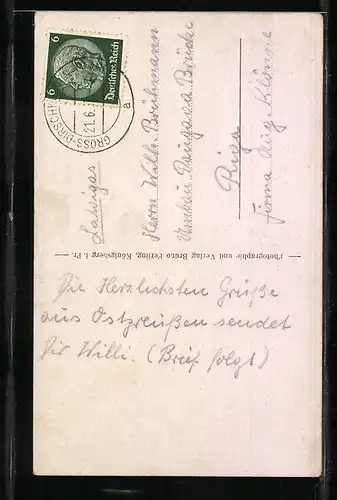 6 Deutsches Reich 6
GROSS-DIRSCHK
21.6.
a
Herrn Willi Brühmann
Umbau Daugava Brücke
Riga
Firma Aug. Klönne
Photographie und Verlag Bruno Perling, Königsberg i. Pr.
Die Herzlichsten Grüße
aus Ostpreußen sendet
Dir Willi. (Brief folgt)